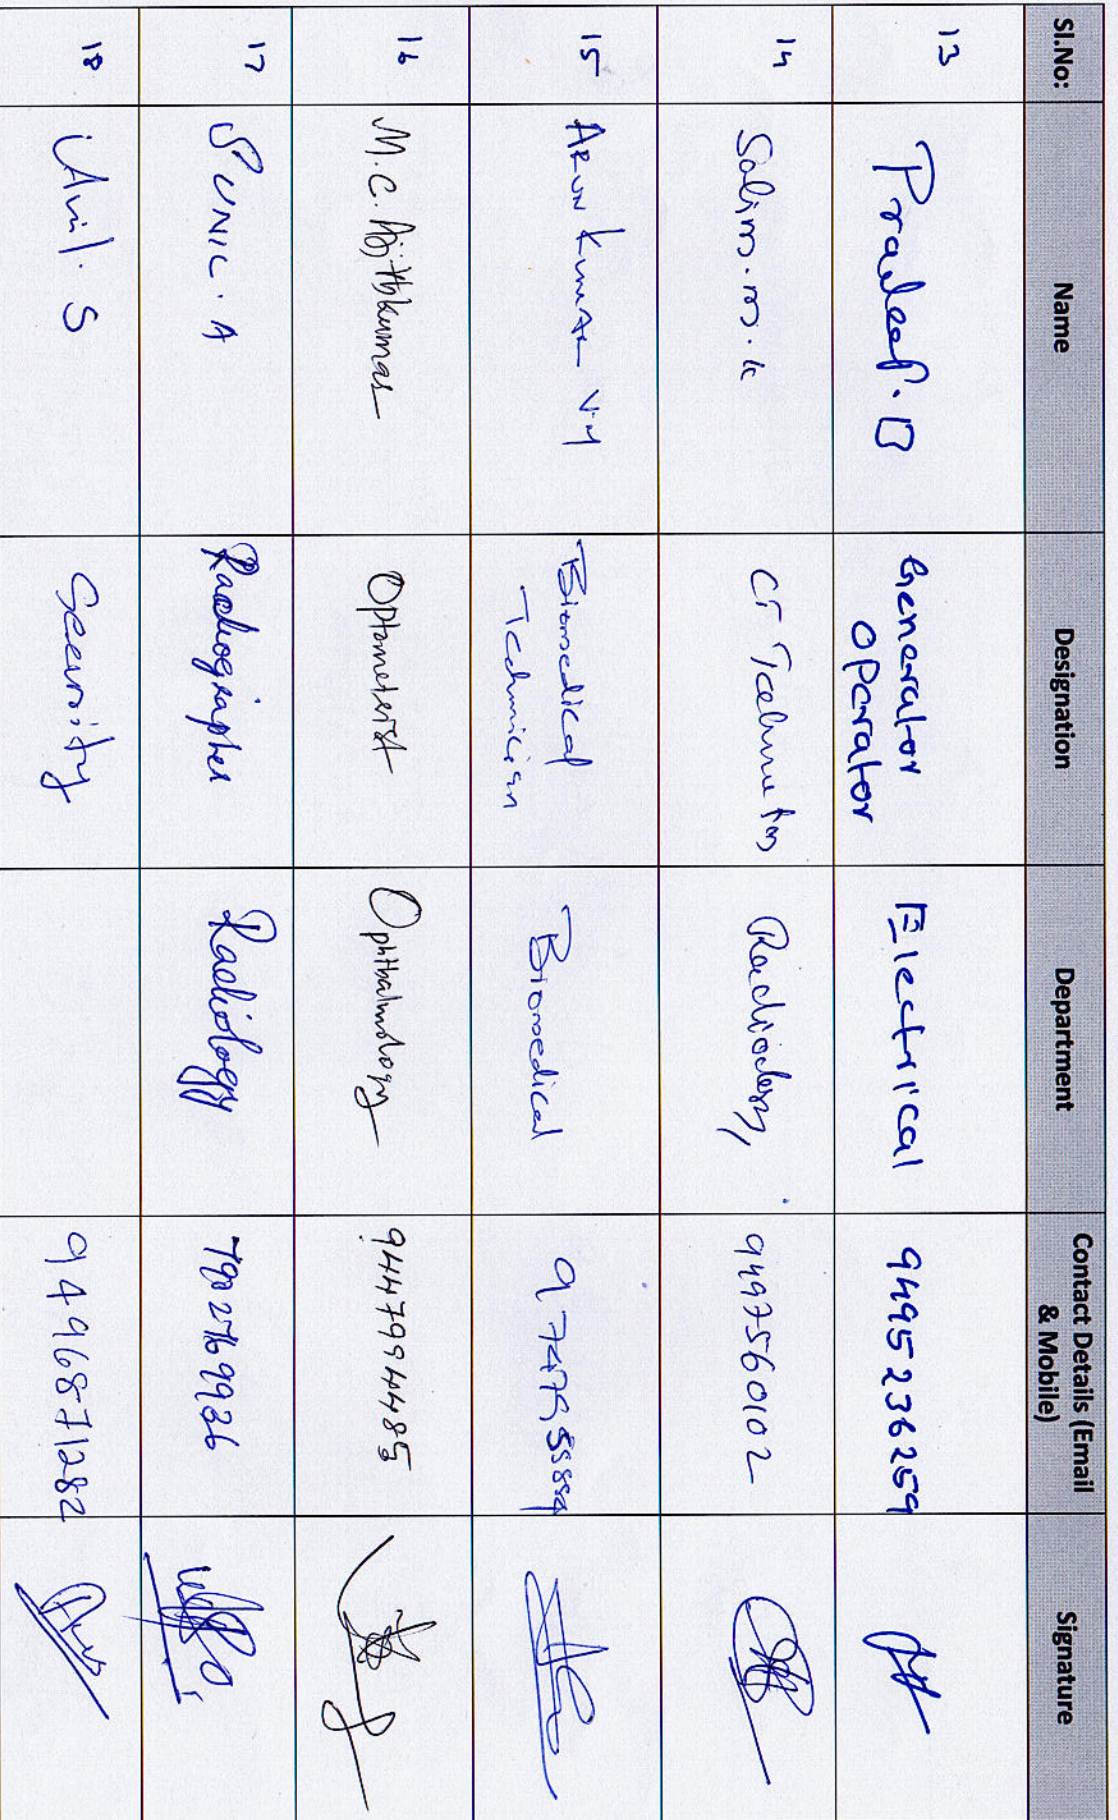 Sl.No: Name Designation Department Contact Details (Email & Mobile) Signature
13 Pradeep. D Generator Operator Electrical 9495236259
14 Salim.m.k CT Radiology 9497560102
15 ARUN KUMAR V.M Biomedical Technician Biomedical
16 M.C. Ajithkumar Optometrist Ophthalmology 9447994485
17 SUNIL. A Radiographer Radiology
18 Anil. S Security 9496871282